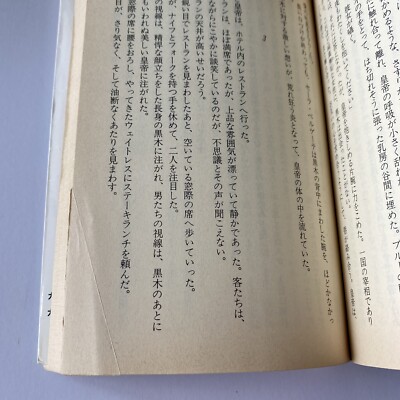 に触れ合って、皇帝の呼吸が小さ
はち切れそうに張った乳房の谷間に埋めた。
片腕に力をこめた。一国の宰相であり
は黒木の背中にまわした腕を、ほどかなか
に対する激しい想いが、荒れ狂う炎となって、皇帝の体の中を流れていた。
3
皇帝は、ホテル内のレストランへ行った。
ランは、ほぼ満席であったが、上品な雰囲気が漂っていて静かであった。客たちは、
ながらにこやかに談笑しているのだが、不思議とその声が聞こえない。
ランの天井が高いせいだろう。
鋭い目でレストランを見まわしたあと、空いている窓際の席へ歩いていった。
が、ナイフとフォークを持つ手を休めて、二人を注目した。
の視線は、精悍な顔立ちをした長身の黒木に注がれ、男たちの視線は、黒木のあとに
もいわれぬ美しい皇帝に注がれた。
窓際の席に腰をおろし、やってきたウェイトレスにステーキランチを頼んだ。
目が、さり気なく、そして油断なくあたりを見まわす。